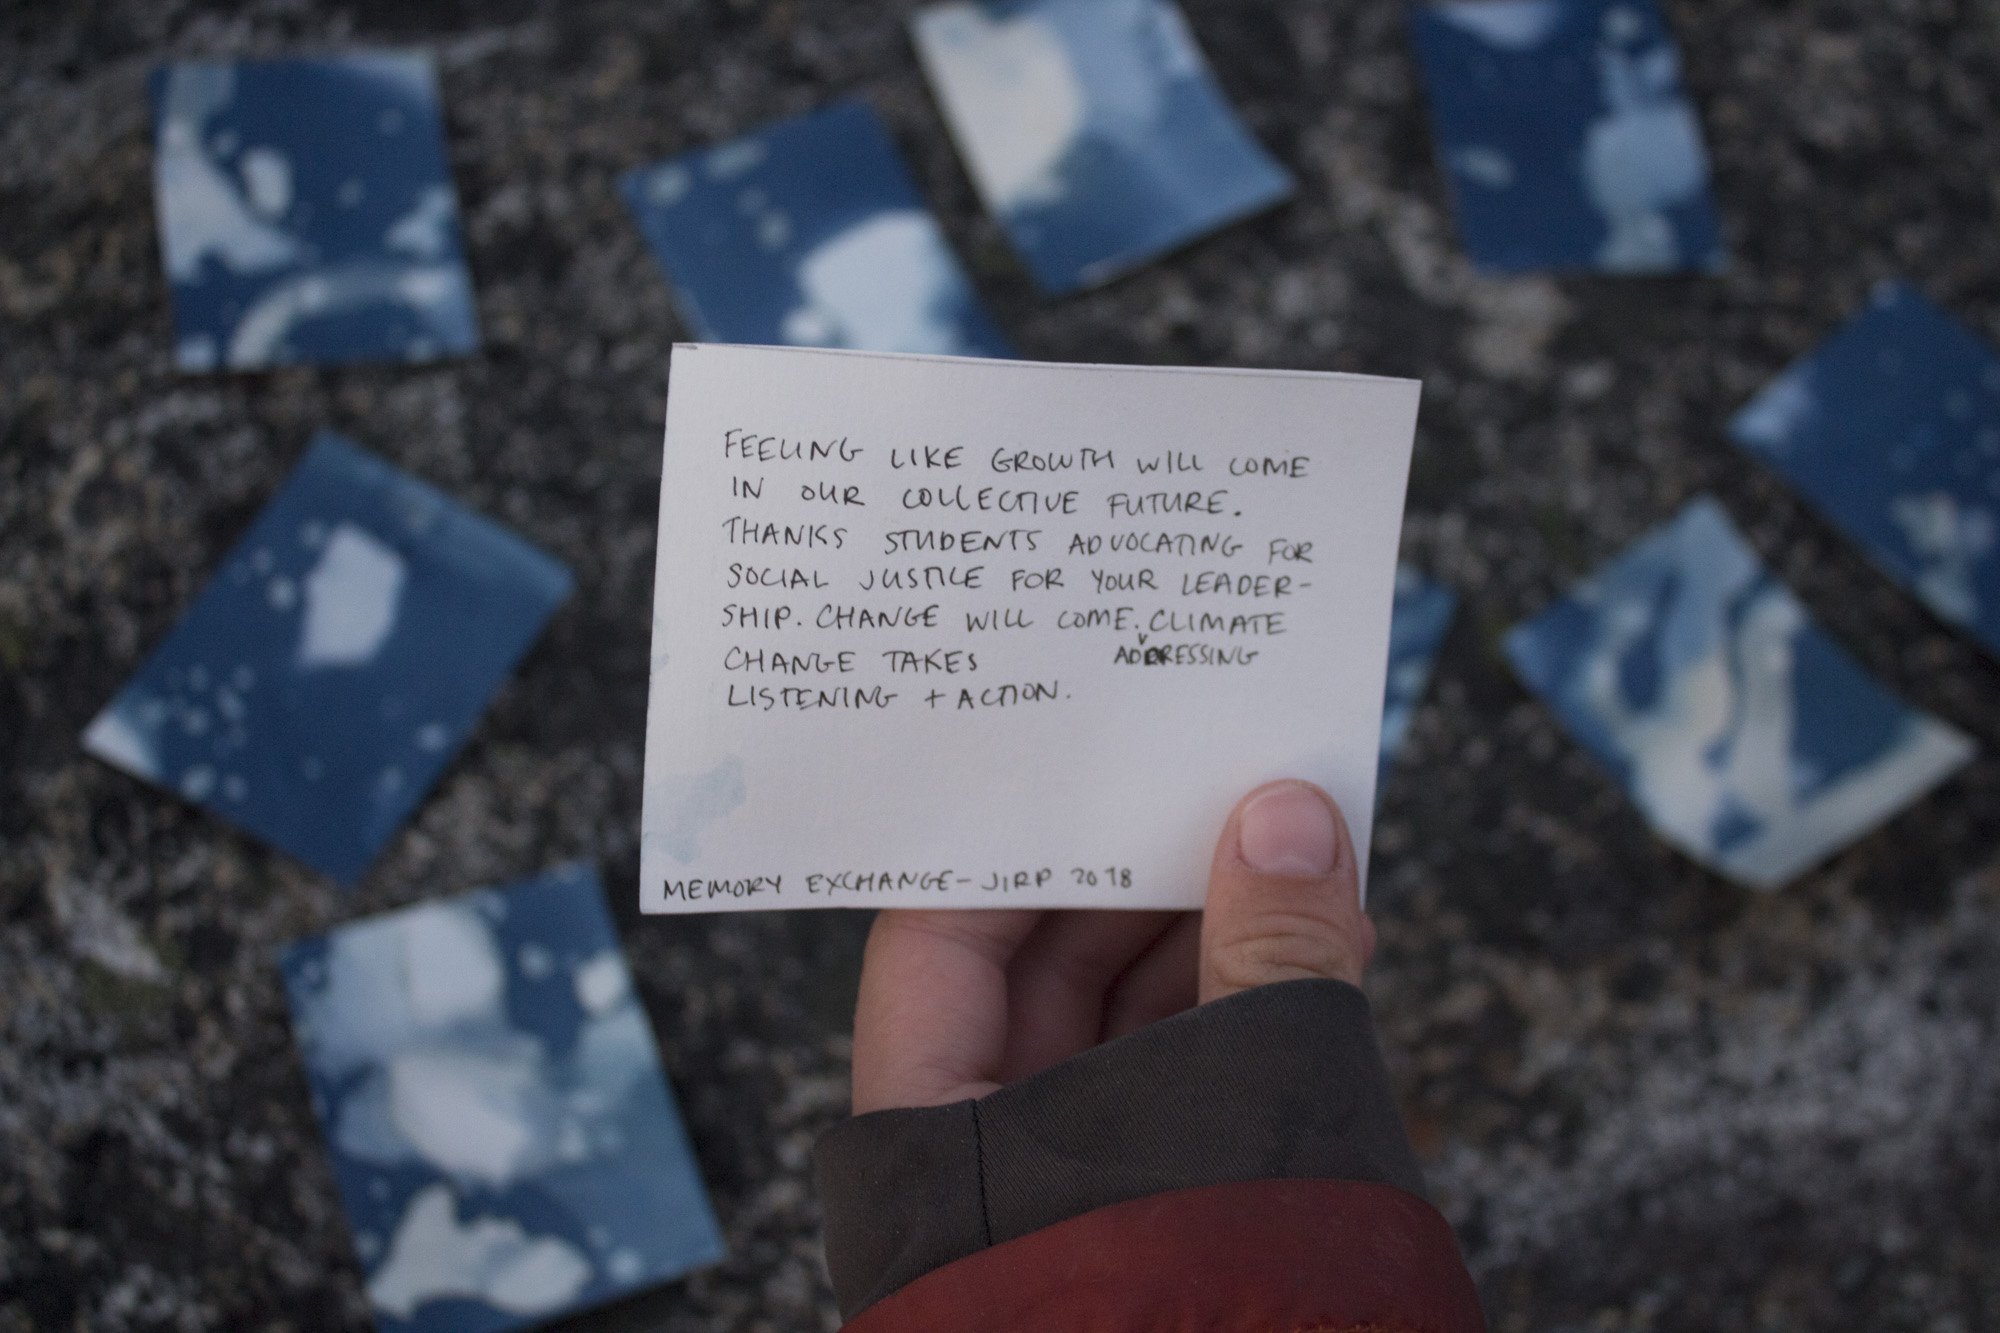 FEELING LIKE GROWTH WILL COME
IN OUR COLLECTIVE FUTURE.
THANKS STUDENTS ADVOCATING FOR
SOCIAL JUSTICE FOR YOUR LEADER-
SHIP. CHANGE WILL COME. CLIMATE
CHANGE TAKES ADDRESSING
LISTENING + ACTION.
MEMORY EXCHANGE - JIRP 2018